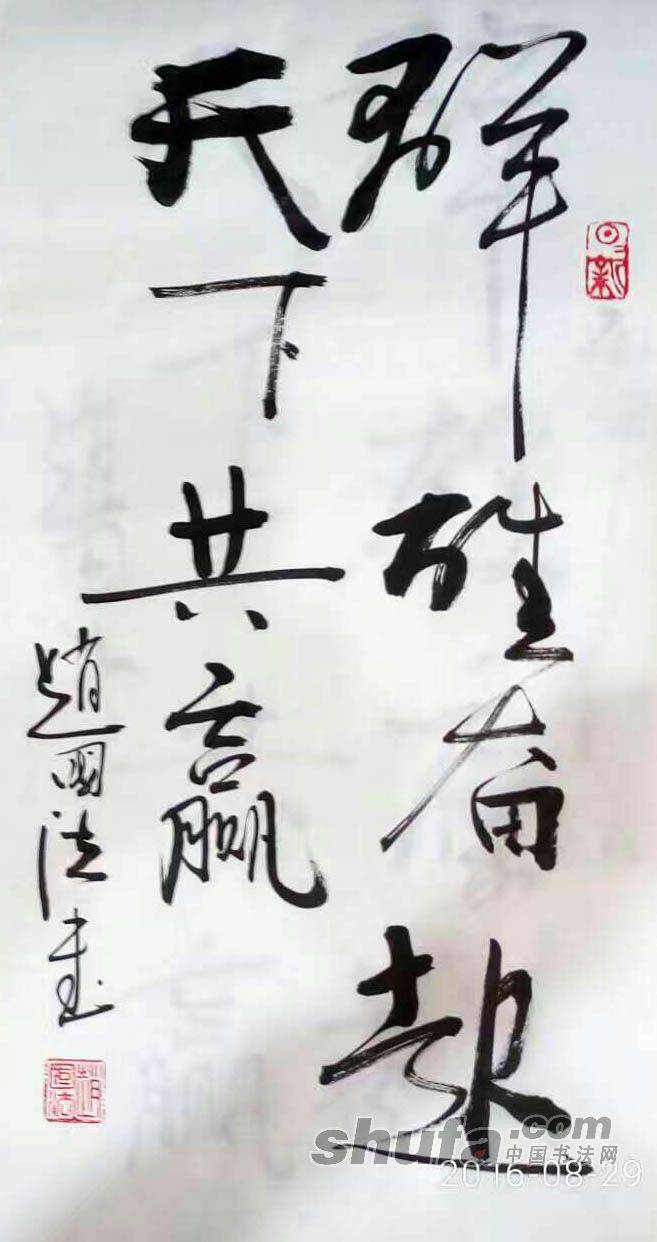 群雄奋起
天下共赢
趙國法书
日新
趙国法
shufa.com
中国书法网
2016-08-29